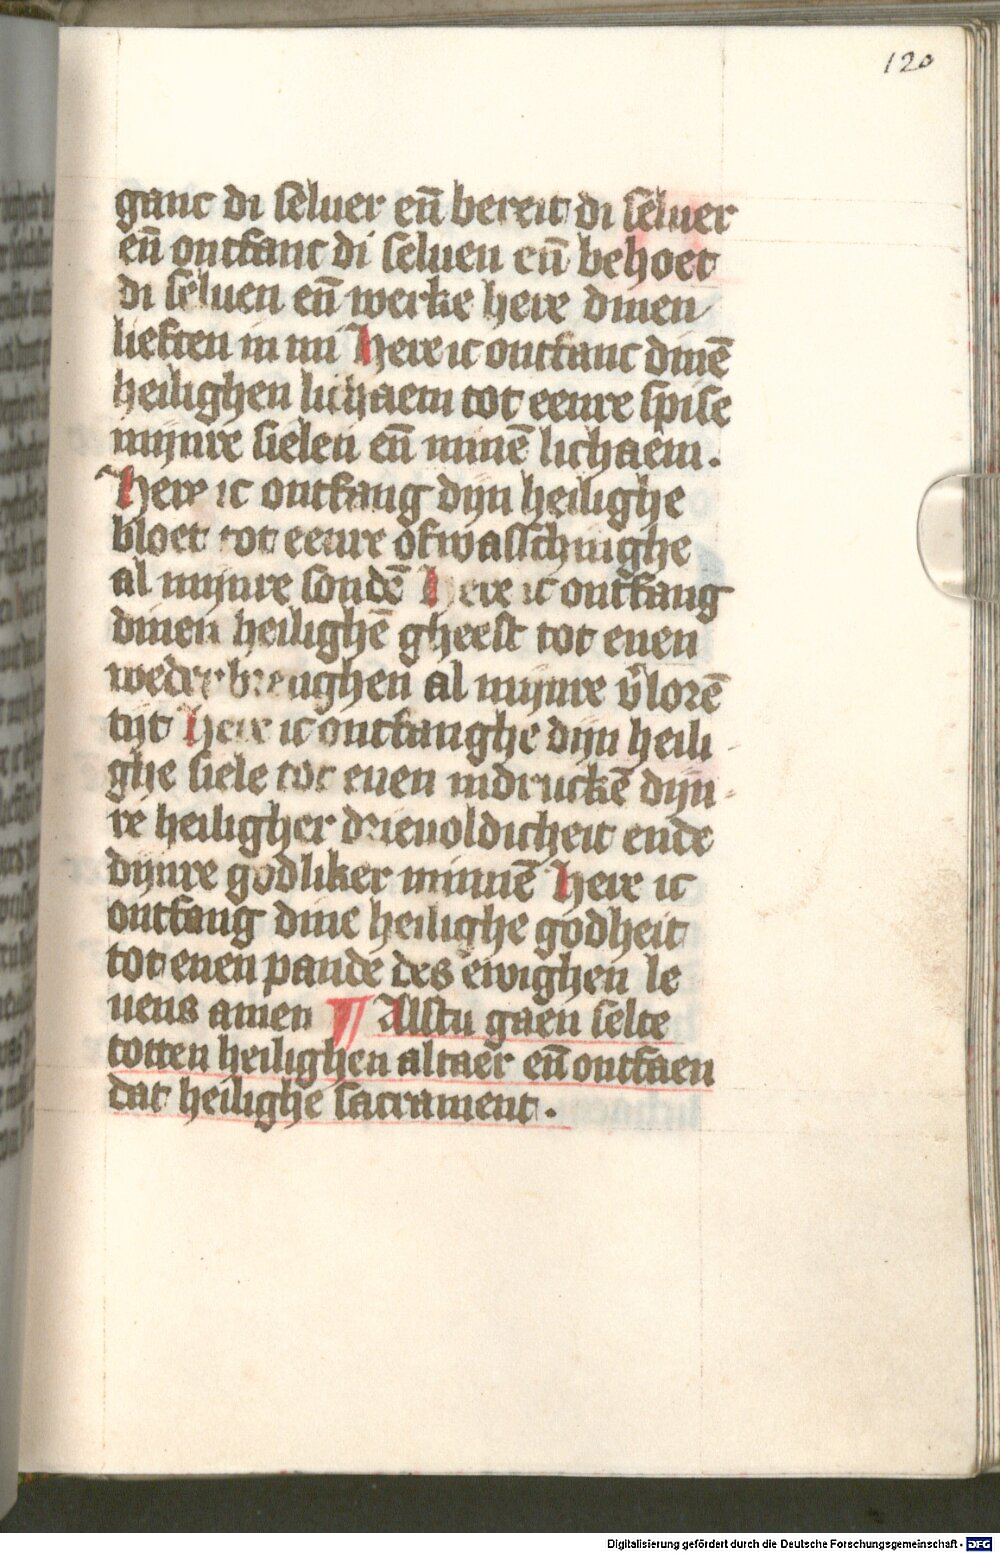 120
ganc di seluer en̄ bereit di seluer
en̄ ontfanc di seluen en̄ behoet
di seluen en̄ werke here dinen
liefsten in mi Here ic ontfanc dinē
heilighen lichaem tot eenre spise
mijnre sielen en̄ minē lichaem.
Here ic ontfang dijn heilighe
bloet tot eenre ofwasschinghe
al mijnre sondē Here ic ontfang
dinen heilighē gheest tot enen
wederbrenghen al mijnre v̄lorē
tijt Here ic ontfanghe dijn heili
ghe siele tot enen indruckē dijn
re heiligher drieuoldicheit ende
dijnre godliker minnē Here ic
ontfang dine heilighe godheit
tot enen pande des ewighen le
uens amen ¶ Alstu gaen selte
totten heilighen altaer en̄ ontfaen
dat heilighe sacrament.
Digitalisierung gefördert durch die Deutsche Forschungsgemeinschaft - DFG